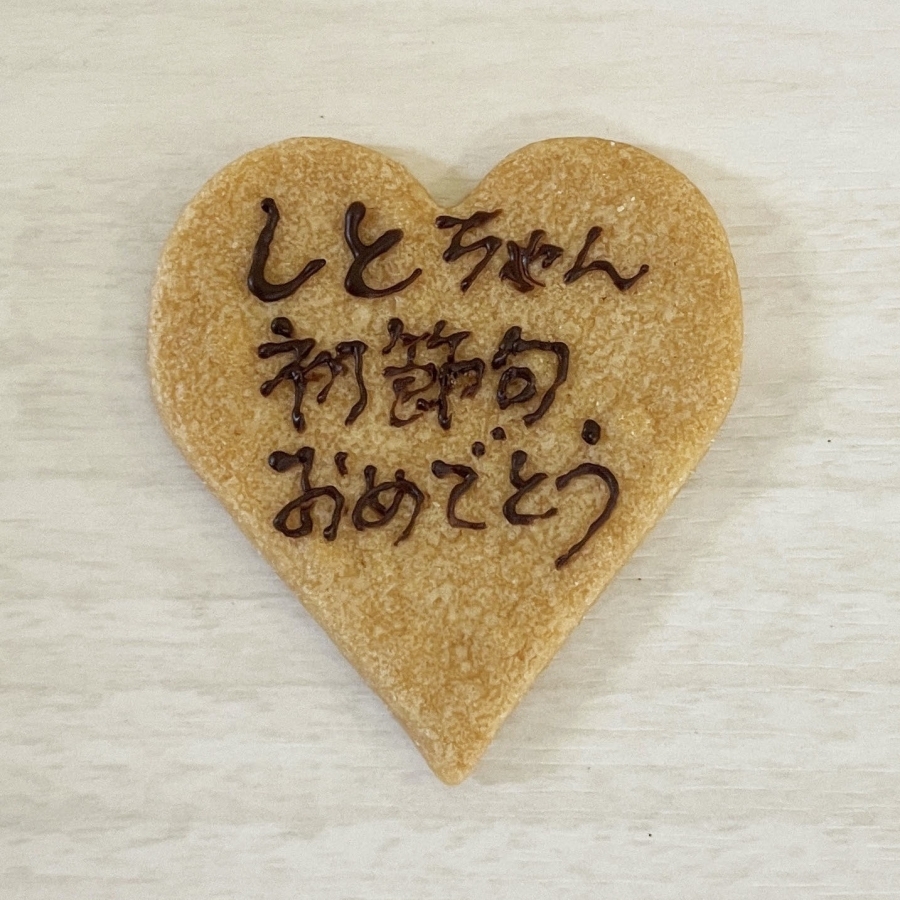 しとちゃん
初節句
おめでとう